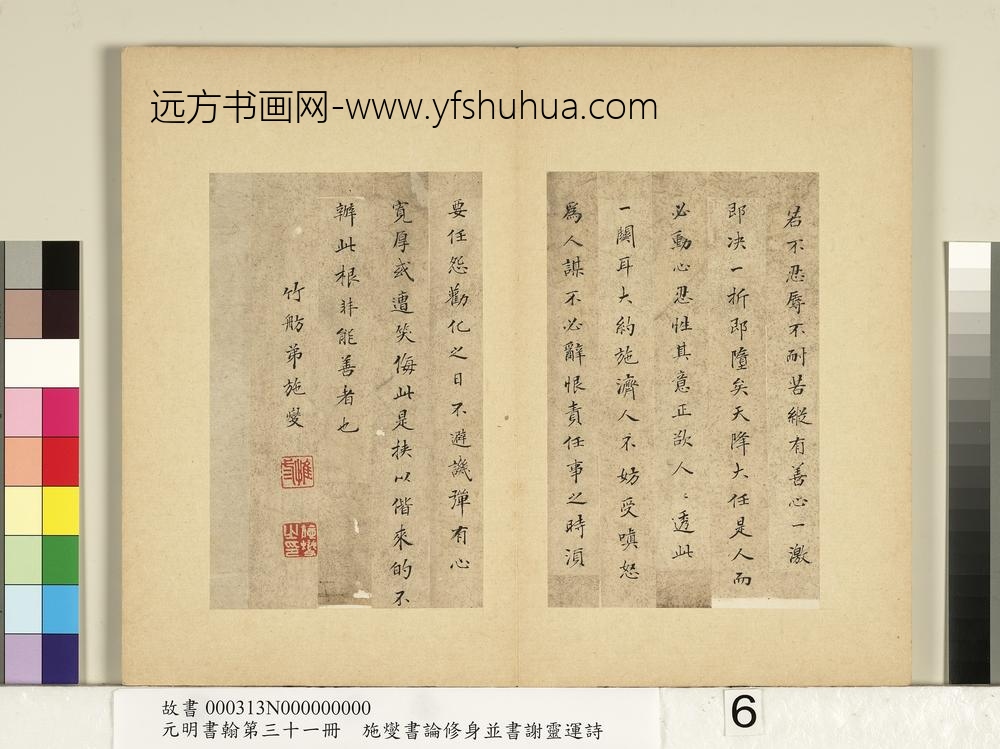 远方书画网-www.yfshuhua.com
若不忍辱不耐苦縱有善心一激
即决一折即墮矣天降大任是人而
必動心忍性其意正欲人〻透此
一關耳大約施濟人不妨受嗔怒
為人謀不必辭恨責任事之時須
要任怨勸化之日不避譏彈有心
寬厚或遭笑侮此是挾以偕來的不
辦此根非能善者也
竹舫弟施燮
施燮之印
故書 000313N000000000
元明書翰第三十一冊 施燮書論修身並書謝靈運詩
6